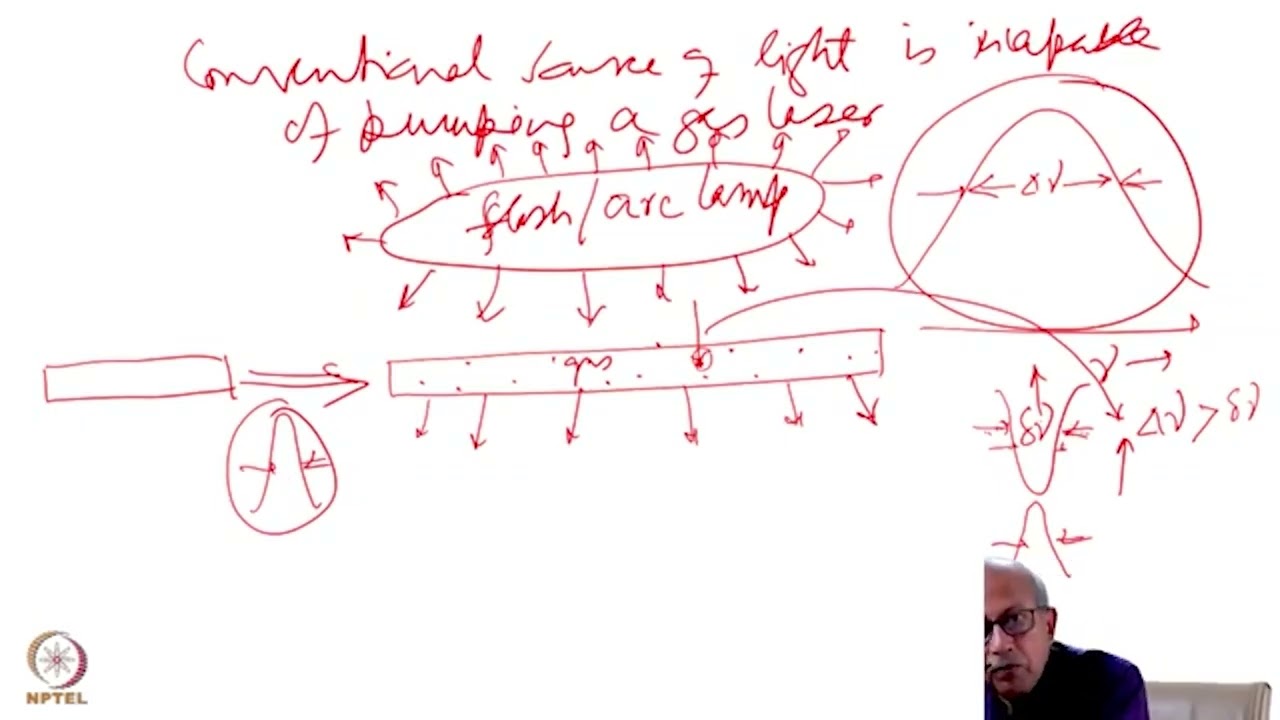 Conventional source of light is incapable
of pumping a gas laser
flash/arc lamp
Δν
gas
ν →
δν
Δν > δν
NPTEL